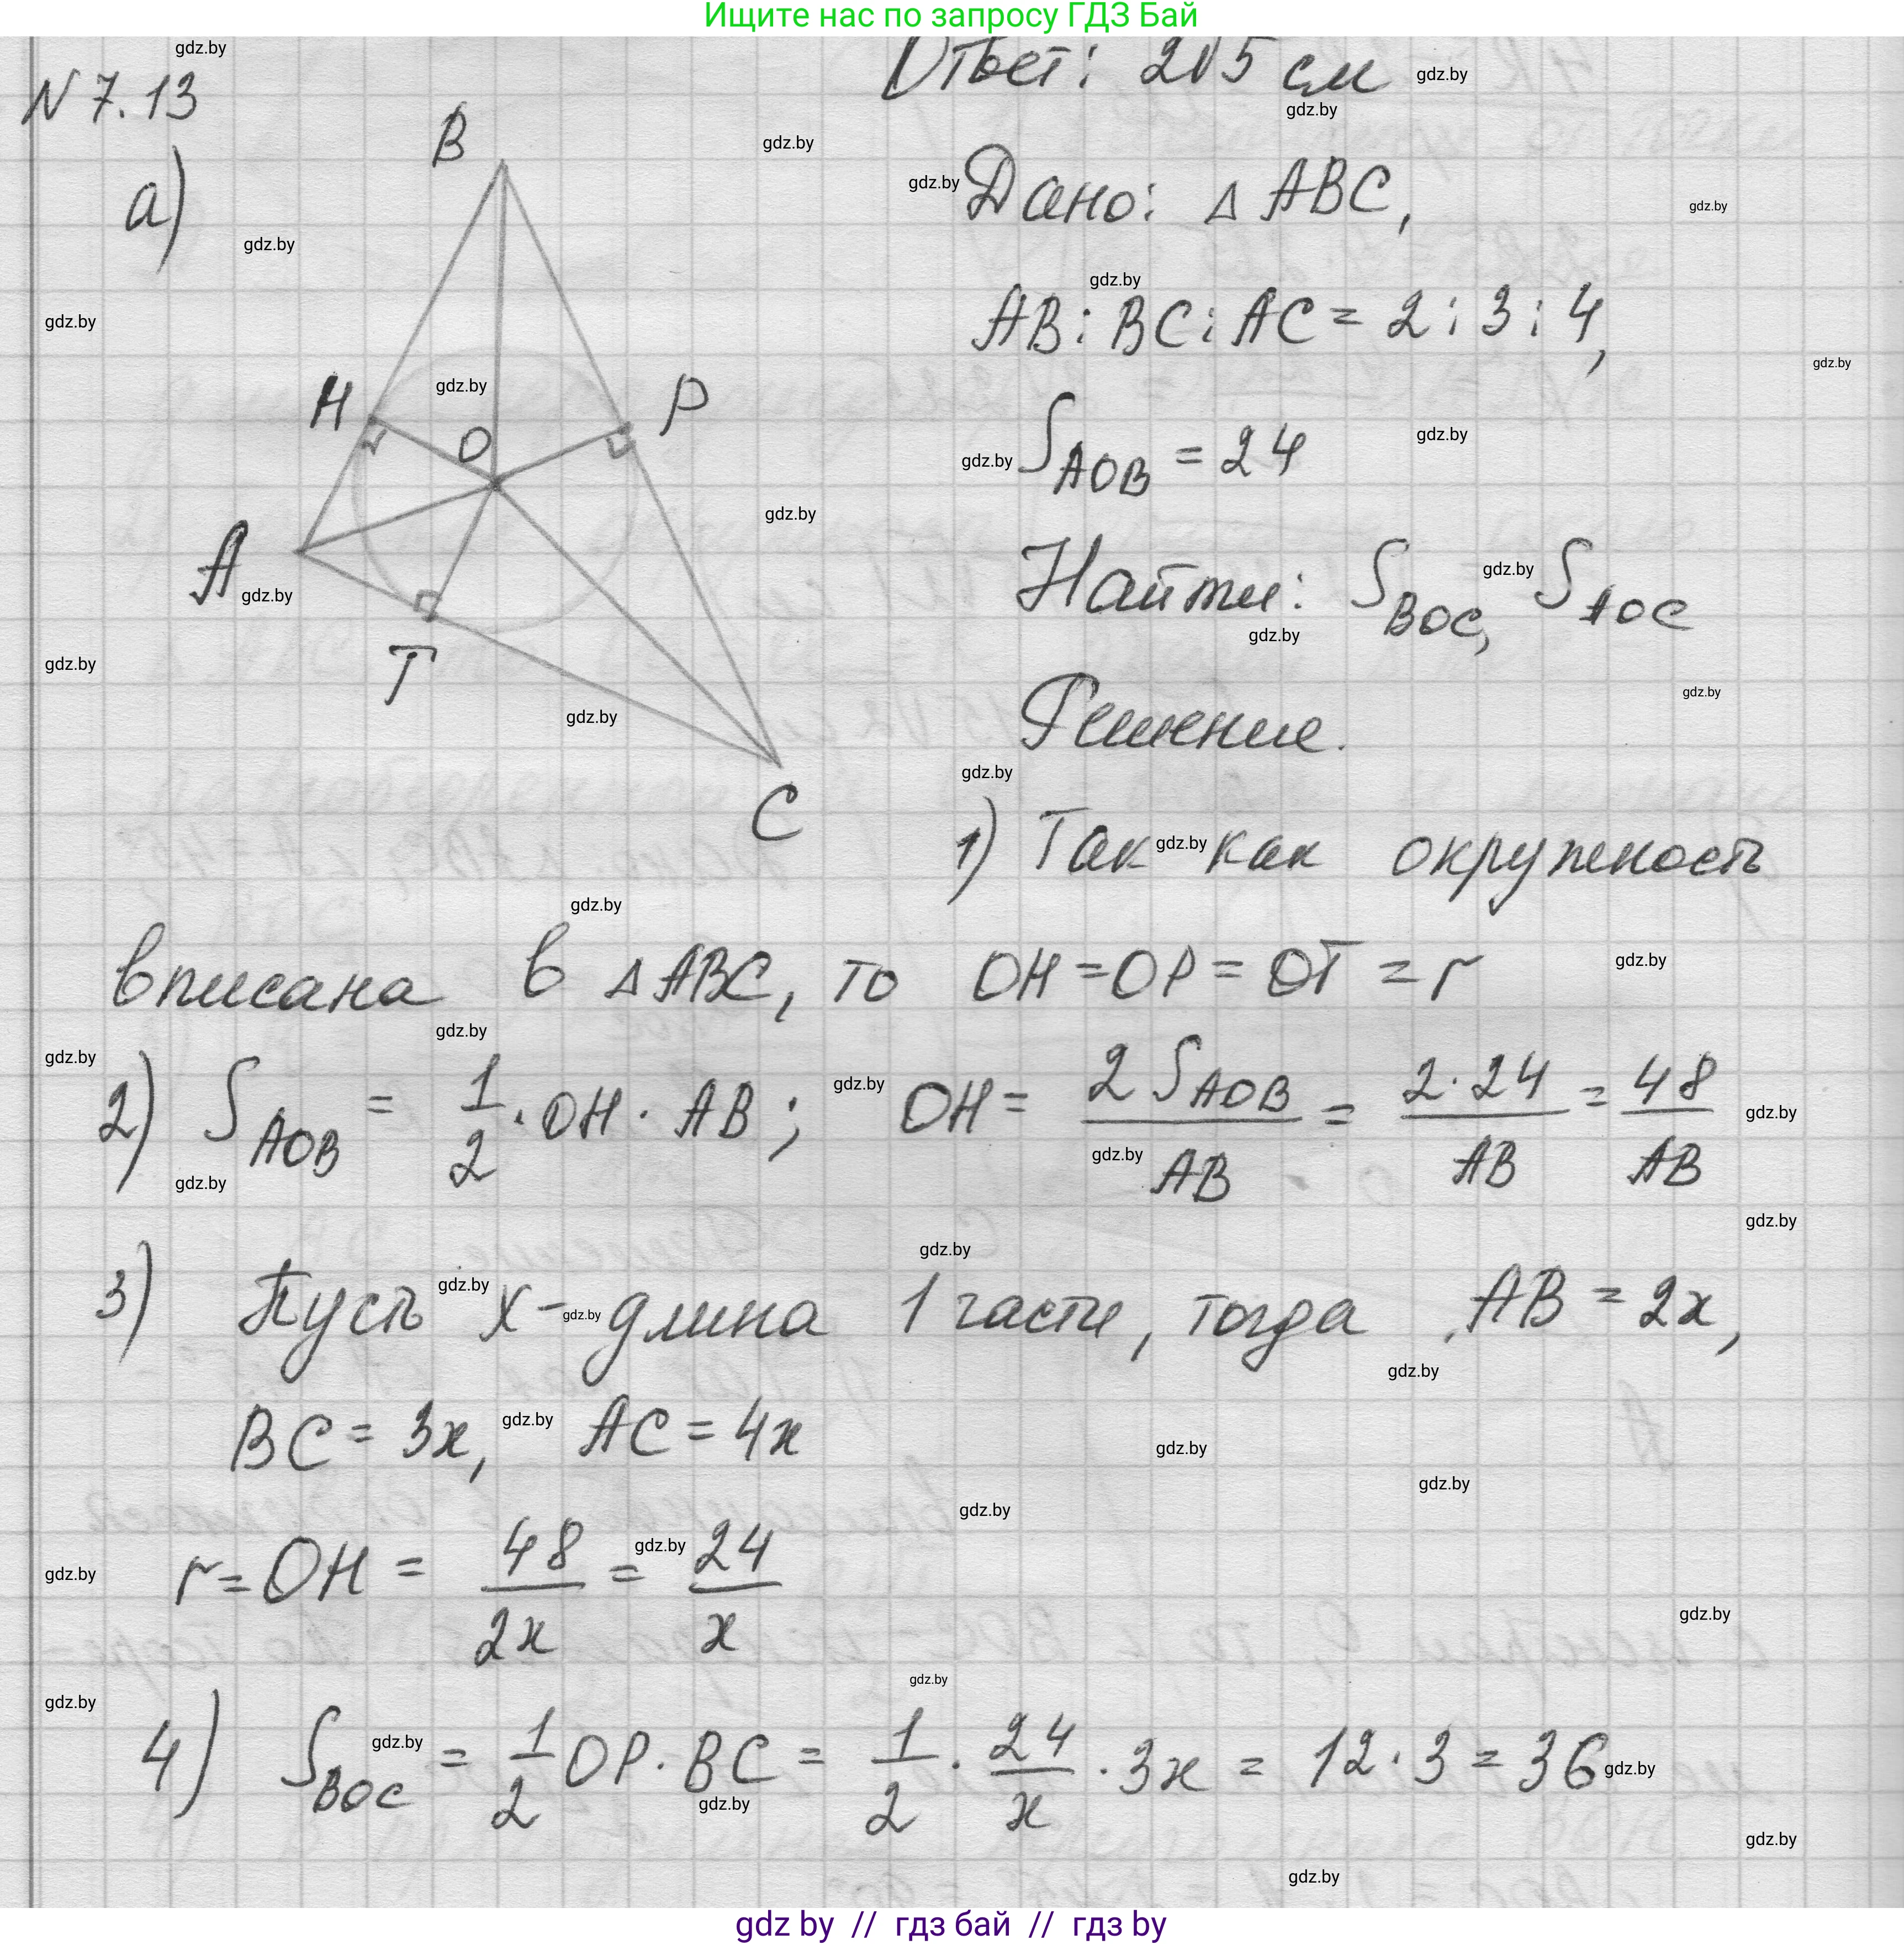 Ищите нас по запросу ГДЗ Бай
Ответ: 2√5 см
N 7.13
а)
B
H
O
P
A
T
C
Дано: △ ABC,
AB : BC : AC = 2 : 3 : 4,
S_AOB = 24
Найти: S_BOC, S_AOC
Решение.
1) Так как окружность
вписана в △ABC, то OH = OP = OT = r
2) S_AOB = 1/2 · OH · AB; OH = 2 S_AOB / AB = 2·24 / AB = 48 / AB
3) Пусть x - длина 1 части, тогда AB = 2x,
BC = 3x, AC = 4x
r = OH = 48 / 2x = 24 / x
4) S_BOC = 1/2 OP · BC = 1/2 · 24/x · 3x = 12 · 3 = 36
gdz by // гдз бай // гдз by
gdz.by